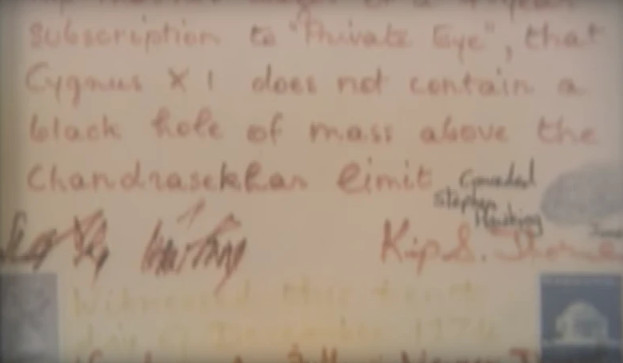 subscription to "Private Eye", that
Cygnus X 1 does not contain a
black hole of mass above the
Chandrasekhar limit
Conceded
Stephen
Hawking
Kip S. Thorne
Witnessed this tenth
day of December 1974